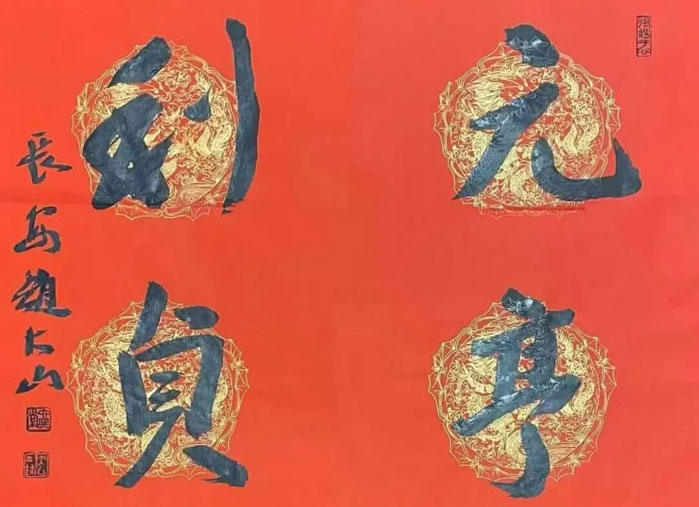 元亨
利貞
長安趙大山